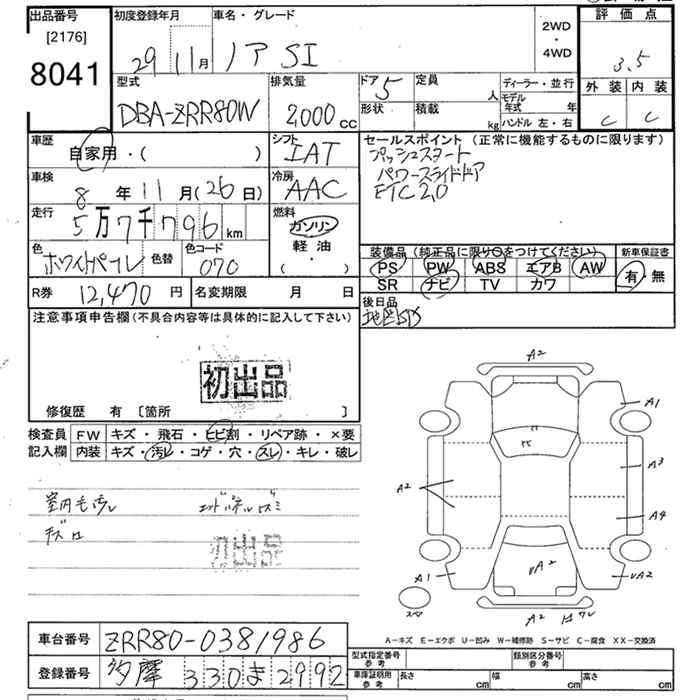 出品番号
[2176]
8041
初度登録年月
29 11月
車名・グレード
ノア SI
2WD
・
4WD
評価点
3.5
外装 内装
C C
型式
DBA-ZRR80W
排気量
2,000 cc
ドア
5
形状
定員
人
積載
kg
ディーラー・並行
モデル
年式 年
ハンドル 左・右
車歴
自家用・( )
シフト
IAT
車検
8年11月(26日)
冷房
AAC
走行
5万7千796 km
燃料
ガソリン
軽油
( ・ )
色
ホワイトパール
色替
色コード
070
R券
12,470 円
名変期限 月 日
セールスポイント (正常に機能するものに限ります)
プッシュスタート
パワースライドドア
ETC2.0
装備品 (純正品に限り○をつけてください)
PS PW ABS エアB AW
SR ナビ TV カワ
新車保証書
有・無
後日品
地図SD
注意事項申告欄 (不具合内容等は具体的に記入して下さい)
初出品
修復歴 有 [箇所 ]
検査員
記入欄
FW キズ・飛石・ヒビ割・リペア跡・×要
内装 キズ・汚レ・コゲ・穴・スレ・キレ・破レ
室内毛汚レ
初出品
A2
A1
A3
A2
A4
A1
VA2
VA2
A2
A-キズ E-エクボ U-凹み W-補修跡 S-サビ C-腐食 XX-交換済
車台番号
ZRR80-0381986
登録番号
多摩 330 ま 2992
型式指定番号
参考
類別区分番号
参考
車庫証明用
参考
長さ cm
幅 cm
高さ cm